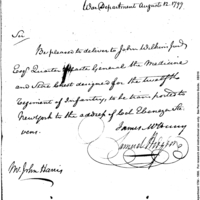 War Department August 12. 1799
Sir
Be pleased to deliver to John Wilkins Junr
Esqr Quarter Master General the Medicine
and Store Chest designed for the twelfth
Regiment of Infantry, to be transported to
New York to the address of Col. Ebenezer Ste
vens.
James McHenry
Samuel Hodgdon
Mr John Harris